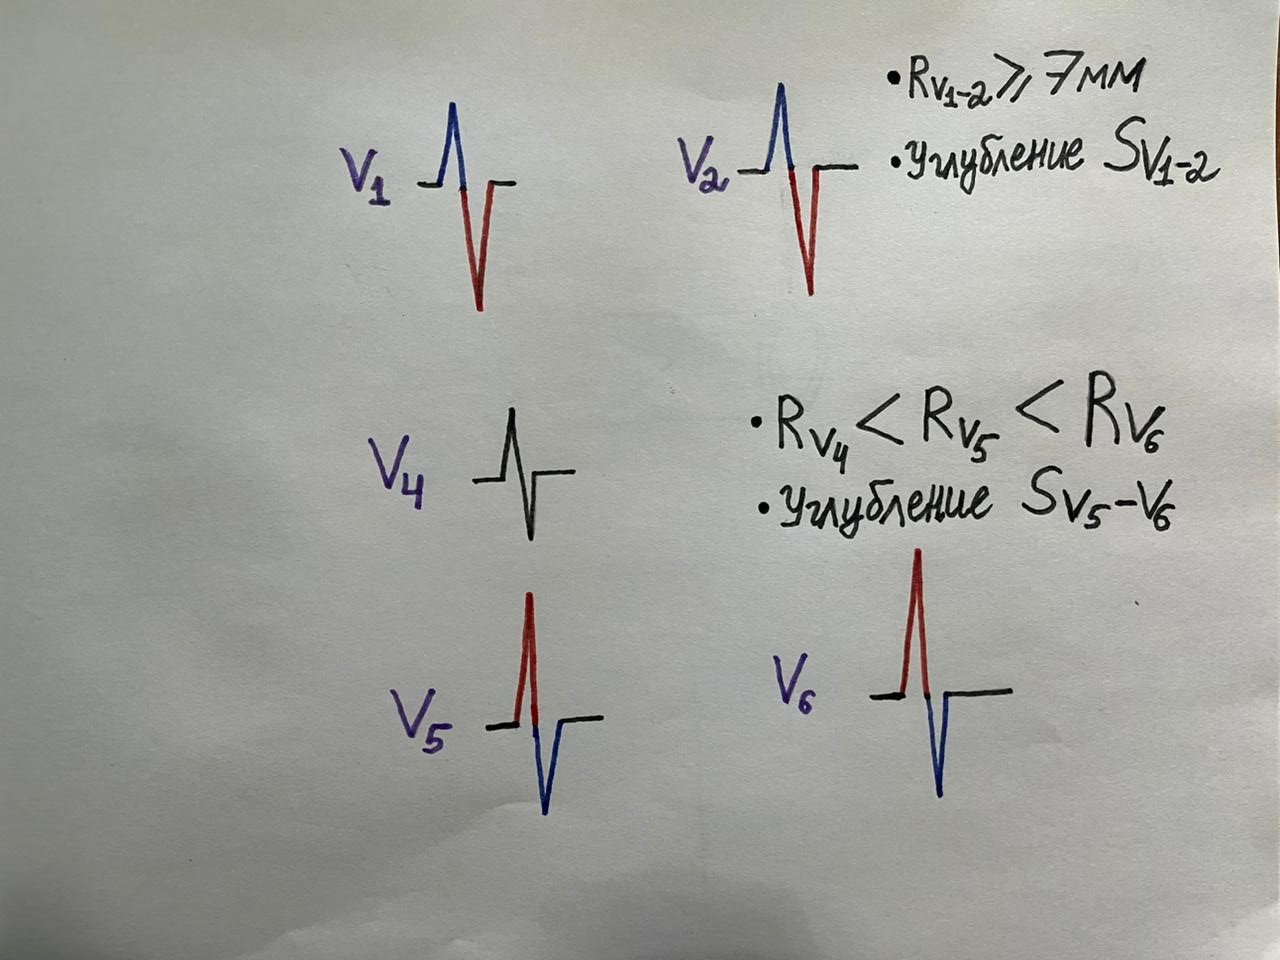 V₁
V₂
• Rv₁₋₂ ⩾ 7мм
• Углубление Sv₁₋₂
V₄
• Rv₄ < Rv₅ < Rv₆
• Углубление Sv₅-v₆
V₅
V₆